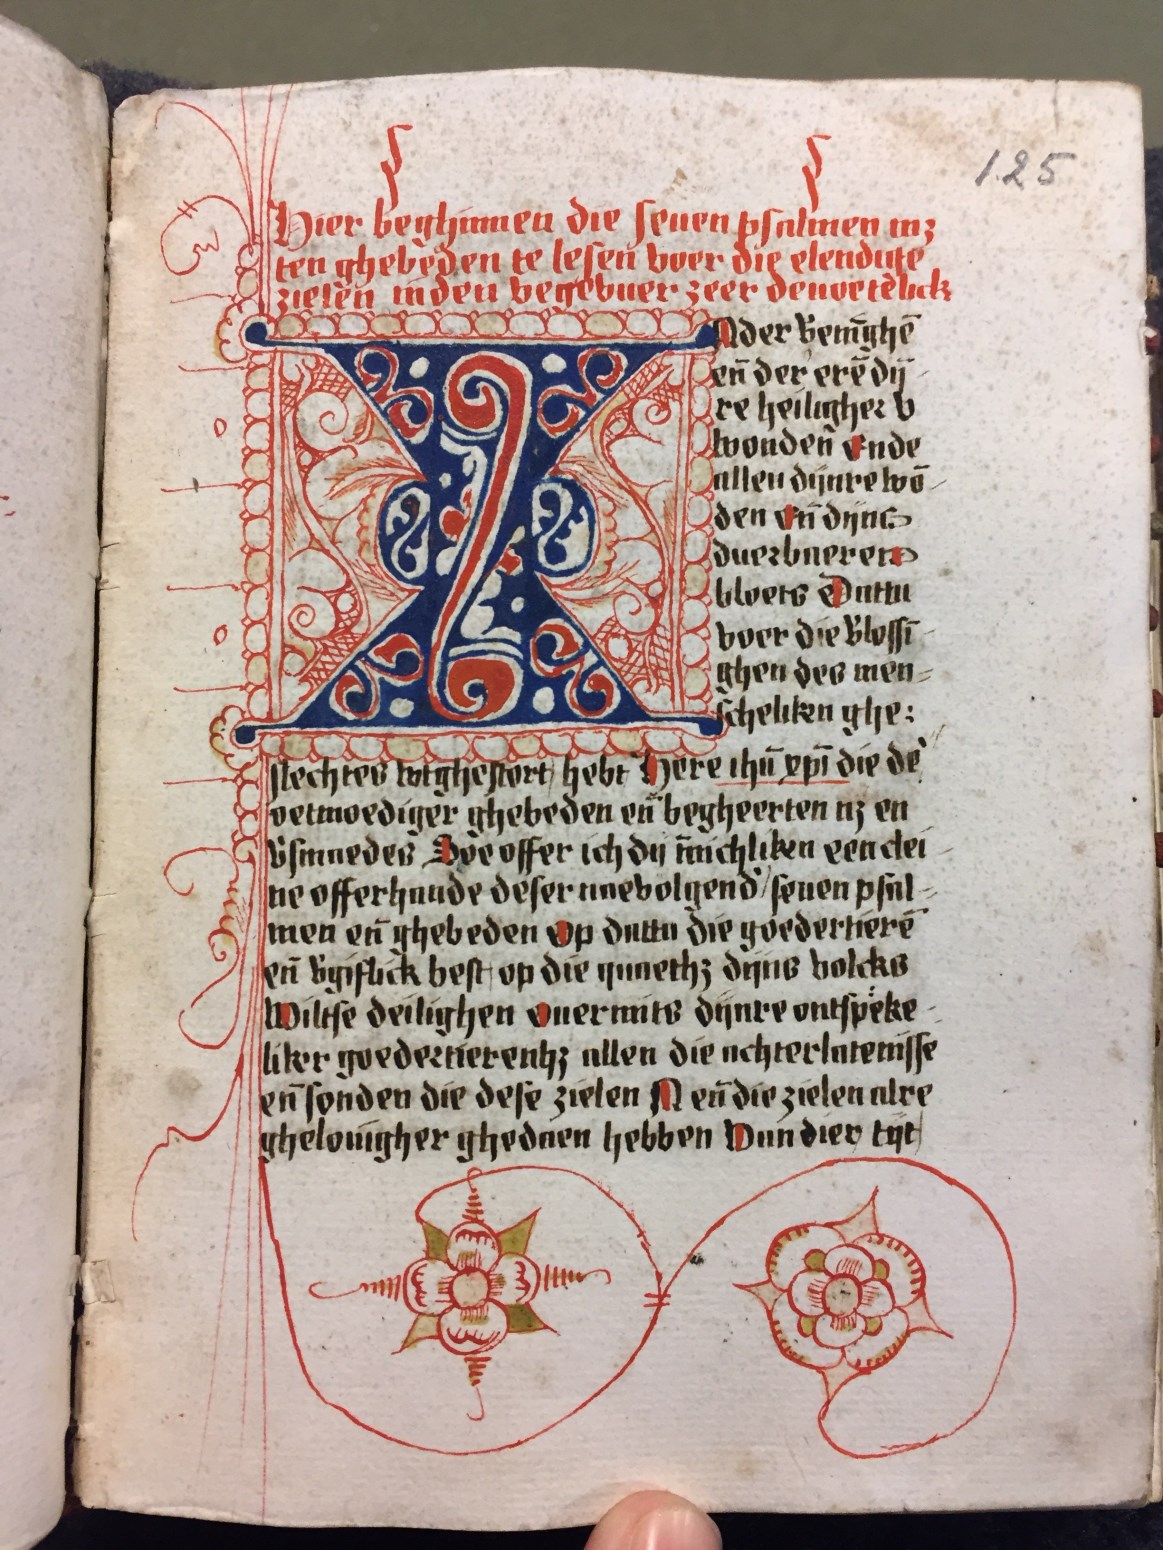 125
Hier beghinnen die seuen psalmen mz
ten ghebeden te lesen voer die elendige
zielen in den vegevuer zeer deuoetelick
I
N der venīghē
en̄ der erē dij
re heiligher v
wonden ende
allen dijnre wō
den en̄ dijns
duerbueren
bloets Dattu
voer die vlossī
ghen des men-
scheliken ghe:
slechtes wtghestort hebt Here ihū xpī die de
oetmoediger ghebeden en̄ begheerten nz en
vsmaedes Soe offer ich dij
een clei
ne offerhande deser naevolgend seuen psal-
men en̄ ghebeden Op dattu die goedertierē
en̄
best op die
dijns volcks
Wiltse deilighen ouermits dijnre ontspreke-
liker goedertierenhz allen die achterlatenisse
en̄ sonden die dese zielen N en̄ die zielen alre
ghelouigher ghedaen hebben Van dier tijt